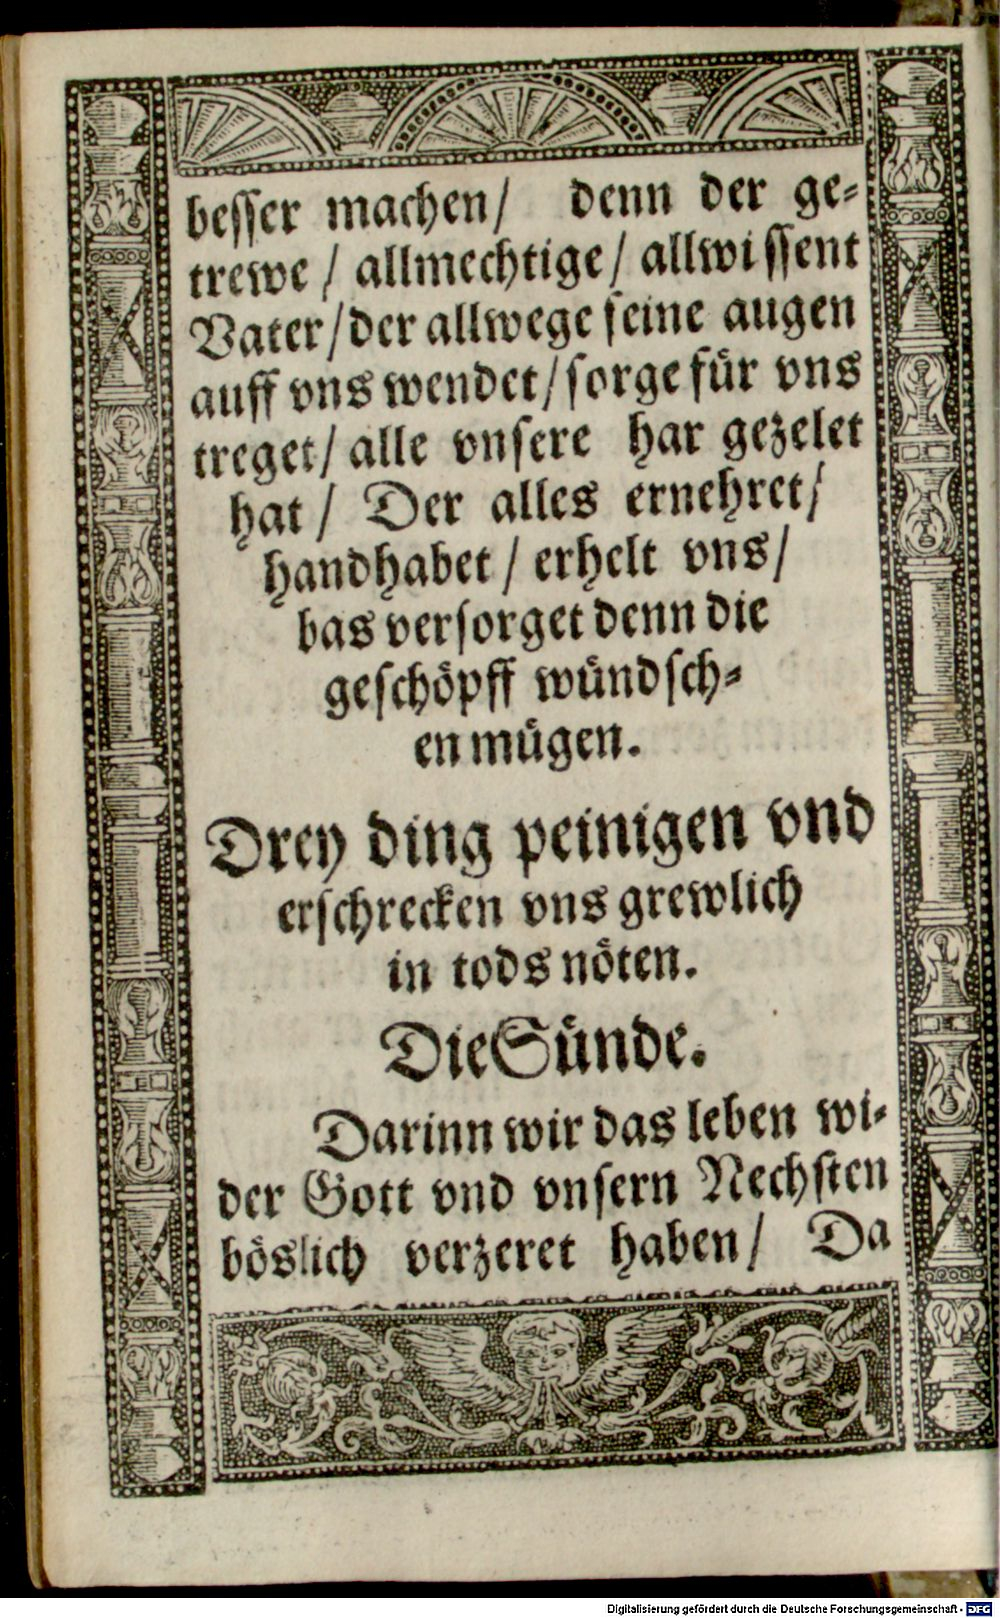 besser machen/ denn der ge=
trewe / allmechtige / allwissent
Vater / der allwege seine augen
auff vns wendet / sorge für vns
treget / alle vnsere har gezelet
hat / Der alles ernehret /
handhabet / erhelt vns /
bas versorget denn die
geschöpff wündsch=
en mügen.
Drey ding peinigen vnd
erschrecken vns grewlich
in tods nöten.
Die Sünde.
Darinn wir das leben wi=
der Gott vnd vnsern Nechsten
böslich verzeret haben / Da
Digitalisierung gefördert durch die Deutsche Forschungsgemeinschaft - DFG